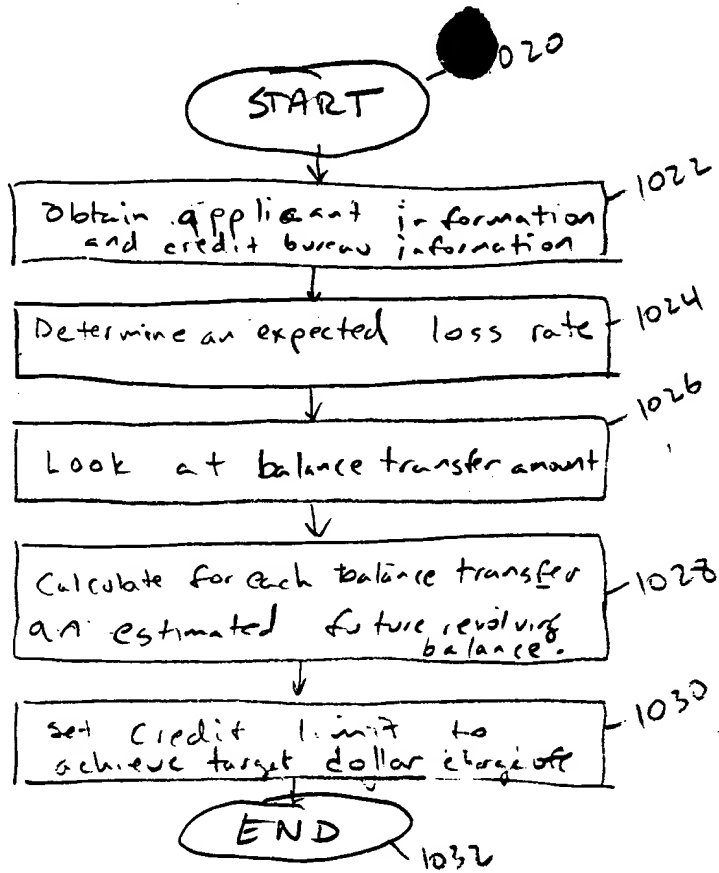 020
START
1022
Obtain applicant information
and credit bureau information
1024
Determine an expected loss rate
1026
Look at balance transfer amount
Calculate for each balance transfer
1028
an estimated future revolving
balance.
1030
set credit limit to
achieve target dollar charge off
END
1032